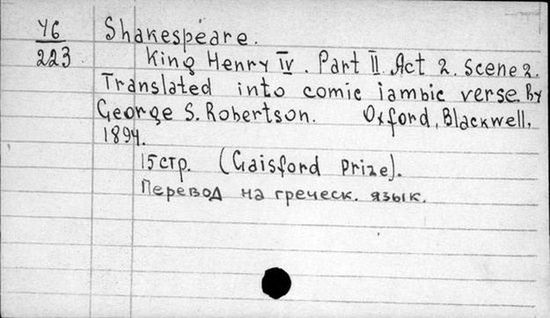 У6 Shakespeare.
223 King Henry IV. Part II. Act 2. Scene 2.
Translated into comic iambic verse. By
George S. Robertson. Oxford, Blackwell,
1894.
15 стр. (Gaisford Prize).
Перевод на греческ. язык.